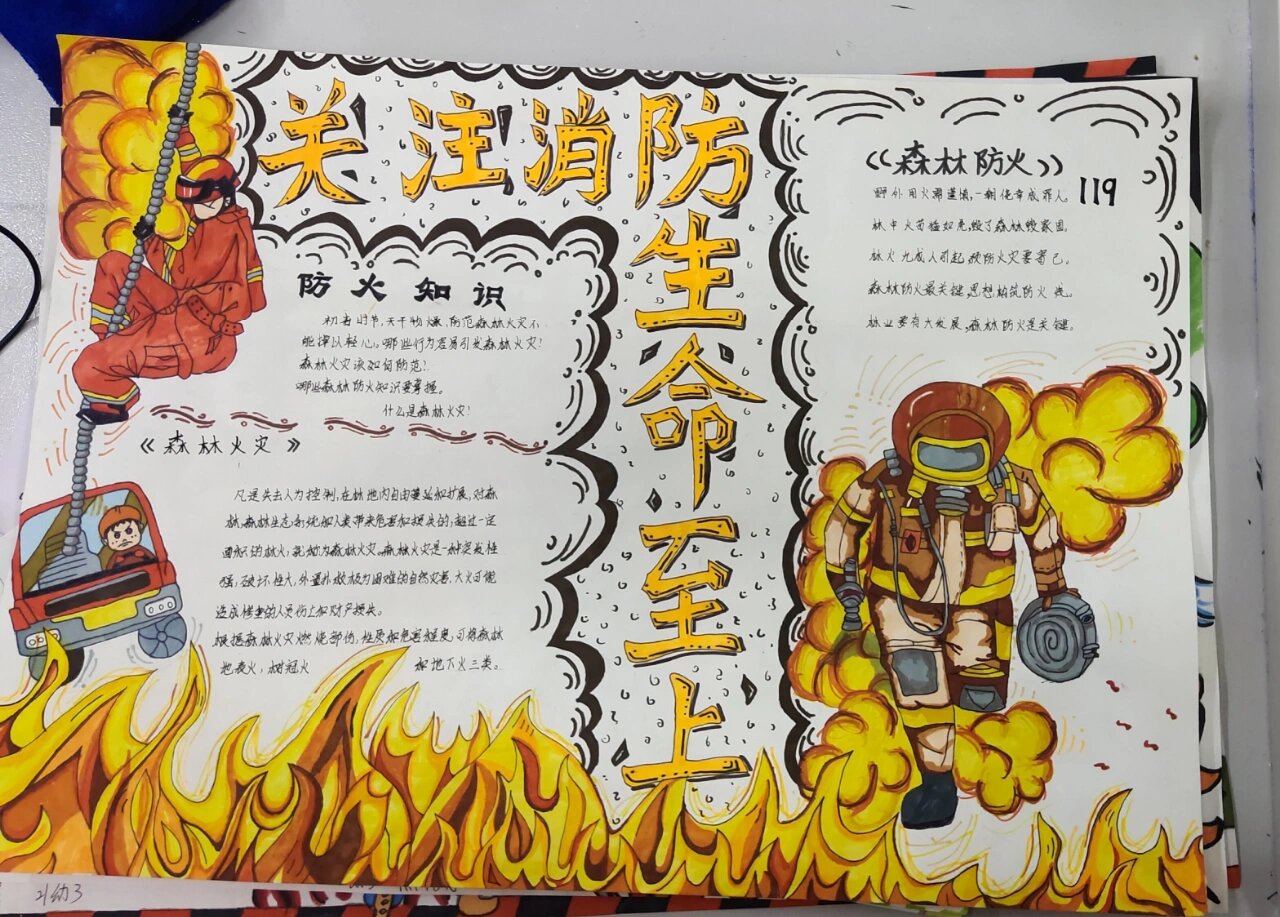 关注消防
生命至上
防火知识
初春时节,天干物燥,防范森林火灾不
能掉以轻心。哪些行为容易引发森林火灾?
森林火灾该如何防范?
哪些森林防火知识要掌握。
什么是森林火灾?
《森林火灾》
凡是失去人为控制,在林地内自由蔓延和扩展,对森
林,森林生态系统和人类带来危害和损失的,超过一定
面积的林火,就称为森林火灾。森林火灾是一种突发性
强,破坏性大,处置扑救极为困难的自然灾害,大火可能
造成惨重的人员伤亡和财产损失。
根据森林火灾燃烧部位,性质和危害程度,可将森林
地表火,树冠火 和地下火三类。
《森林防火》
119
野外用火需谨慎,一朝侥幸成罪人。
林中火苗猛如虎,毁了森林毁家园。
林火九成人引起,预防火灾要害己。
森林防火最关键,思想构筑防火线。
林业要有大发展,森林防火是关键。
21幼3